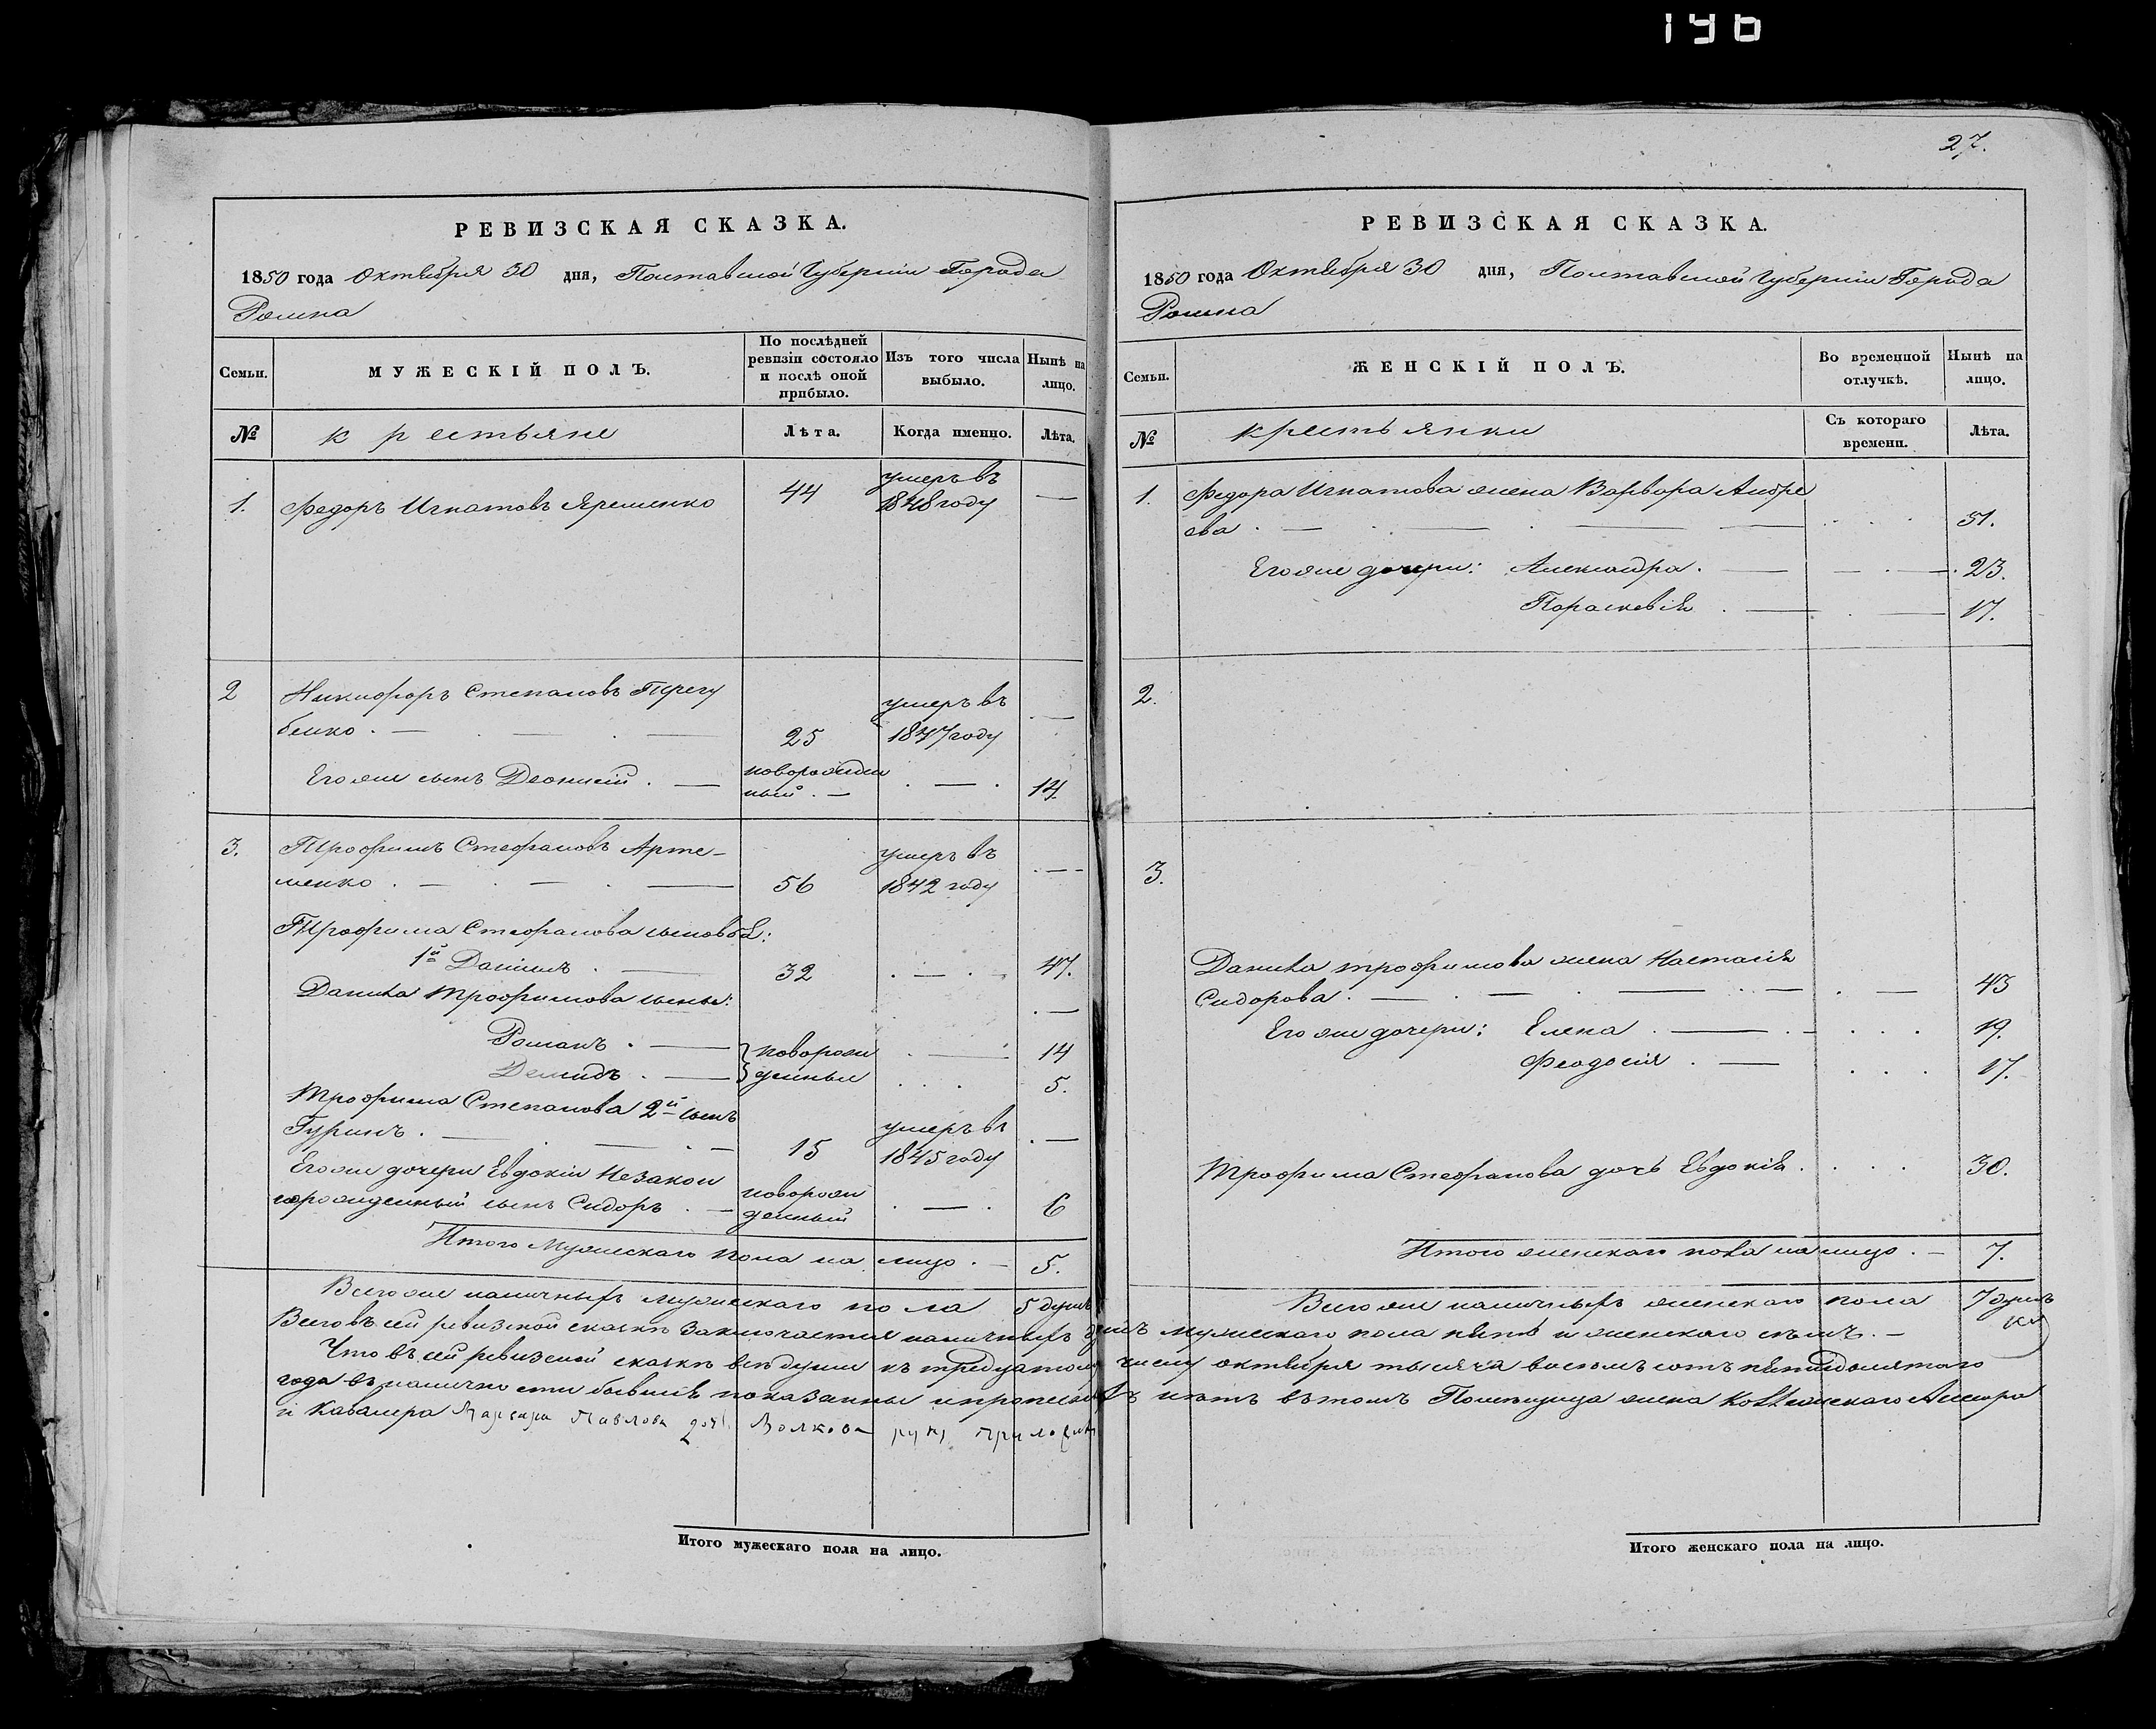 196
РЕВИЗСКАЯ СКАЗКА.
1850 года Октября 30 дня, Полтавской Губернии Города
Ромна
Семьи.
МУЖЕСКІЙ ПОЛЪ.
По послѣдней
ревизіи состояло
и послѣ оной
прибыло.
Изъ того числа
выбыло.
Нынѣ на
лицо.
№
крестьяне
Лѣта.
Когда именно.
Лѣта.
1. Федоръ Игнатовъ Яременко 44 умеръ въ
1848 году —
2 Никифоръ Степановъ Трегу
бенко . — . — . — 25 умеръ въ
1847 году . —
Его же сынъ Деонисій . — новорожден
ный . — . — . 14.
3. Трофимъ Стефановъ Арте-
менко . — . — . — 56 умеръ въ
1842 году . —
Трофима Стефанова сыновья:
1й Даніилъ . — 32 . — . 47.
Данила Трофимова сыны: . —
Романъ . — новорож . — 14
Демидъ . — денные . . . 5.
Трофима Степанова 2й сынъ
Гуринъ . — . — . — 15 умеръ въ
1845 году . —
Его же дочери Евдокіи незакон
норожденный сынъ Сидоръ . — новорож
денный . — . 6
Итого Мужескаго пола на лицо . — 5.
Всего же наличныхъ мужескаго пола 5 душъ
27.
РЕВИЗСКАЯ СКАЗКА.
1850 года Октября 30 дня, Полтавской Губернии Города
Ромна
Семьи.
ЖЕНСКІЙ ПОЛЪ.
Во временной
отлучкѣ.
Нынѣ на
лицо.
№
крестьянки
Съ котораго
времени.
Лѣта.
1. Федора Игнатова жена Варвара Андре
ева . — . — . — . . . 51.
Его же дочери: Александра . — — . — . 23.
Парасковія . — . — 17.
2.
3.
Данила Трофимова жена Настасія
Сидорова . — . — . — . — . — 43
Его же дочери: Елена . — . — . . . 19.
Феодосія . — . . . 17.
Трофима Стефанова дочь Евдокія . . . . 30.
Итого женскаго пола на лицо . — 7.
Всего же наличныхъ женскаго пола 7 душъ
Всего въ сей ревизской сказкѣ заключается наличныхъ душъ мужескаго пола пять и женскаго семь. —
Что въ сей ревизской сказкѣ всѣ души къ тридцатому числу октября тысяча восемь сотъ пятидесятаго
года въ наличности бывшія показаны и прописныхъ нѣтъ въ томъ Помѣщица жена Коллежскаго Ассесора
и Кавалера Павлова дочь Волкова руку приложила
Итого мужескаго пола на лицо.
Итого женскаго пола на лицо.